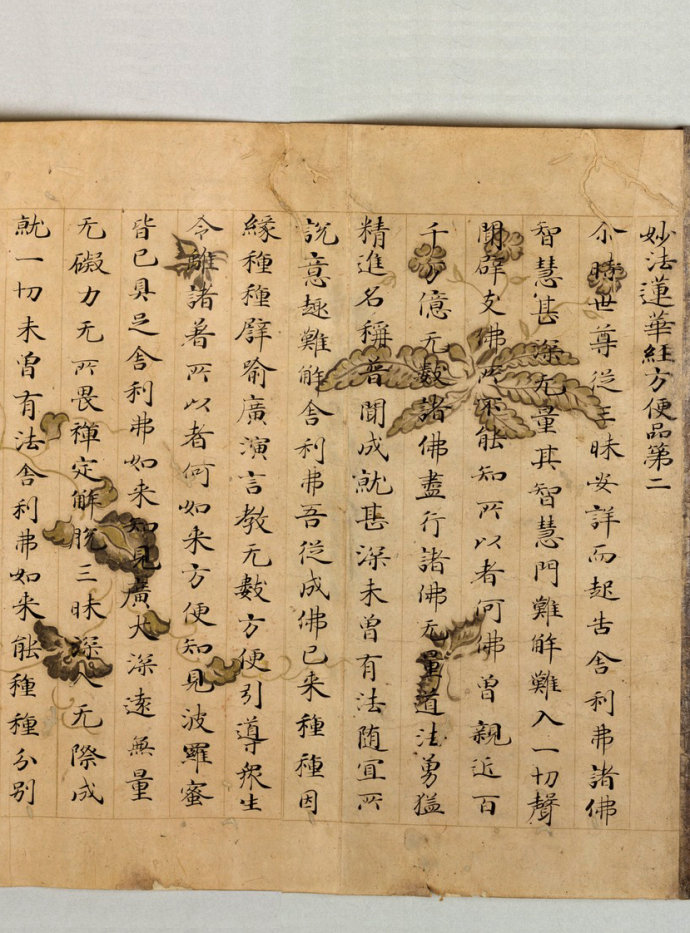 妙法蓮華經方便品第二
尒時世尊從三昧安詳而起告舍利弗諸佛
智慧甚深无量其智慧門難解難入一切聲
聞辟支佛所不能知所以者何佛曾親近百
千万億无數諸佛盡行諸佛无量道法勇猛
精進名稱普聞成就甚深未曾有法随宜所
説意趣難解舍利弗吾從成佛已来種種因
緣種種譬喻廣演言教无數方便引導衆生
令離諸著所以者何如来方便知見波羅蜜
皆已具足舍利弗如来知見廣大深遠無量
无礙力无所畏禪定解脱三昧深入无際成
就一切未曾有法舍利弗如来能種種分别